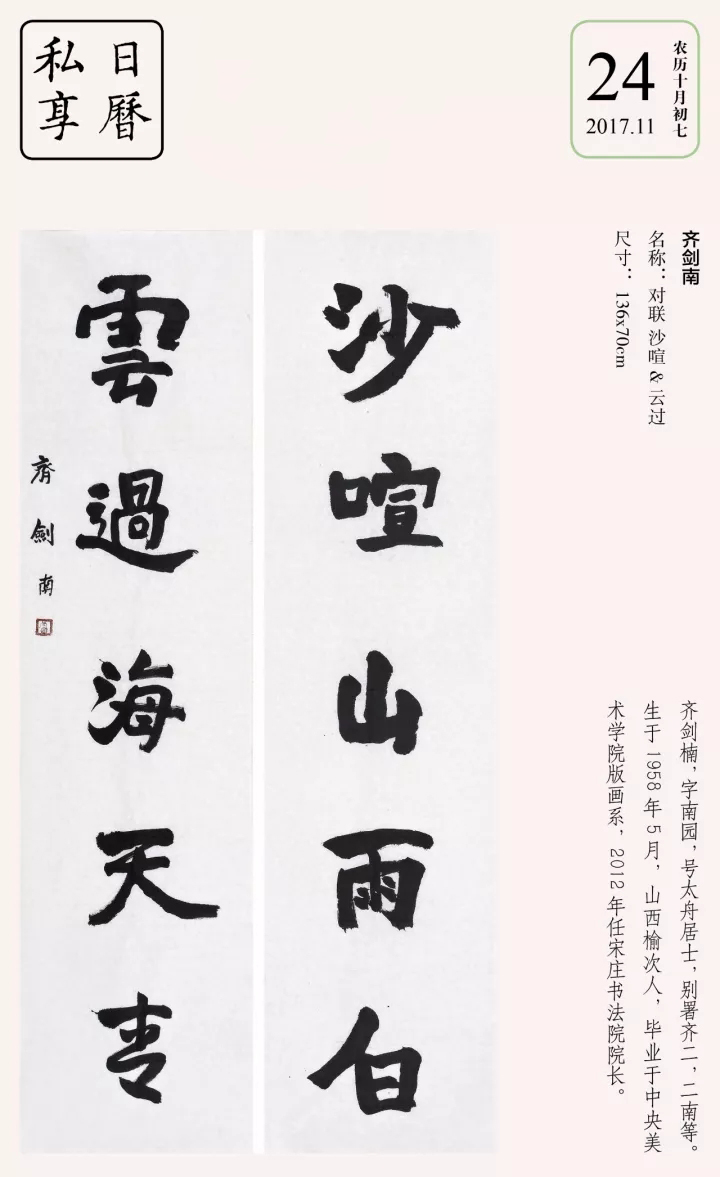 日曆
私享
24
2017.11
农历十月初七
齐剑南
名称：对联 沙喧 & 云过
尺寸： 136x70cm
沙喧山雨白
雲過海天青
齊劍南
齐剑楠，字南园，号太舟居士，别署齐二，二南等。
生于 1958 年 5 月，山西榆次人，毕业于中央美
术学院版画系，2012 年任宋庄书法院院长。